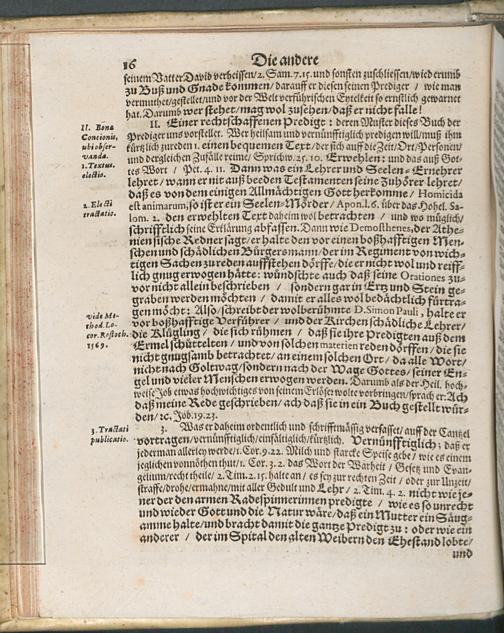 16
Die andere
seinem Vatter David verheissen/2. Sam. 7. 15. und sonsten zuschliessen/wiederumb
zu Buß und Gnade kommen/ darauff er diesen seinen Prediger / wie man
vermuthet/gestellet/und vor der Welt verführischen Eytelkeit so ernstlich gewarnet
hat. Darumb wer stehet/mag wol zusehen/daß er nicht falle!
II. Bona
Concionis,
ubi obser-
vanda.
1. Textus.
electio.
II. Einer rechtschaffenen Predigt: deren Muster dieses Buch der
Prediger uns vorstellet. Wer heilsam und vernünfftiglich predigen will/muß ihm
kürtzlich zureden 1. einen bequemen Text/der sich auff die Zeit/Ort/Personen/
und dergleichen Zufälle reime/ Sprichw. 25. 10. Erwehlen: und das auß Got-
tes Wort / Pet. 4. 11. Dann was ein Lehrer und Seelen-Ernehrer
lehret/ wann er nit auß beeden Testamenten seine Zuhörer lehret/
daß es von dem einigen Allmächtigen Gott herkomme/ Homicida
2. Electi
tractatio.
est animarum, so ist er ein Seelen-Mörder/ Apon. l. 6. über das Hohel. Sa-
lom. 2. den erwehlten Text daheim wol betrachten / und wo müglich/
schrifftlich seine Erklärung abfassen. Dann wie Demosthenes, der Athe-
niensische Redner sagt/er halte den vor einen boßhafftigen Men-
schen und schädlichen Bürgersmann/der im Regiment von wich-
tigen Sachen zureden auffstehen dörffe/die er nicht wol und reiff-
lich gnug erwogen hätte: wündschte auch daß seine Orationes zu-
vor nicht allein beschrieben / sondern gar in Ertz und Stein ge-
graben werden möchten / damit er alles wol bedächtlich fürtra-
vide Me-
thod. Lo-
cor. Rostoch.
1569.
gen möcht: Also/schreibt der wolberühmte D. Simon Pauli, halte er
vor boßhafftige Verführer / und der Kirchen schädliche Lehrer/
die Klügling / die sich rühmen / daß sie ihr Predigten auß dem
Ermel schüttelten / und von solchen materien reden dörffen/ die sie
nicht gnugsamb betrachtet/ an einem solchen Ort/ da alle Wort/
nicht nach Goltwag/sondern nach der Wage Gottes/ seiner En-
gel und vieler Menschen erwogen werden. Darumb als der Heil. hoch-
weise Job etwas hochwichtiges von seinem Erlöser wolte vorbringen/ sprach er: Ach
daß meine Rede geschrieben/ ach daß sie in ein Buch gestellt wür-
den/ 2c. Job. 19. 23.
3. Tractati
publicatio.
3. Was er daheim ordentlich und schrifftmässig verfasset/auff der Cantzel
vortragen/vernünfftiglich/einfältiglich/kürtzlich. Vernünfftiglich; daß er
jederman allerley werde/1. Cor. 9. 22. Milch und starcke Speise gebe/ wie es einem
jeglichen vonnöthen thut/ 1. Cor. 3. 2. das Wort der Warheit / Gesetz und Evan-
gelium/recht theile / 2. Tim. 2. 15. halte an / es sey zur rechten Zeit / oder zur Unzeit/
straffe/drohe/ermahne/mit aller Gedult und Lehr / 2. Tim. 4. 2. nicht wie je-
ner der den armen Radespinnerinnen predigte / wie es so unrecht
und wieder Gott und die Natur wäre/ daß ein Mutter ein Säug-
amme halte/und bracht damit die gantze Predigt zu: oder wie ein
anderer / der im Spital den alten Weibern den Ehestand lobte/
und